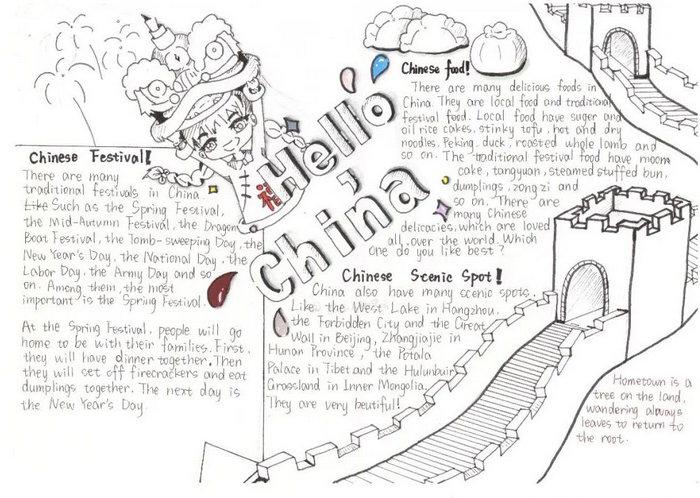 Hello
China
福
Chinese Festival!
There are many
traditional festivals in China.
Like Such as the Spring Festival,
the Mid-Autumn Festival, the Dragon
Boat Festival, the Tomb-sweeping Day, the
New Year's Day, the National Day, the
Labor Day, the Army Day and so
on. Among them, the most
important is the Spring Festival.
At the Spring Festival, people will go
home to be with their families. First,
they will have dinner together. Then
they will set off firecrackers and eat
dumplings together. The next day is
the New Year's Day.
Chinese food!
There are many delicious foods in
China. They are local food and traditional
festival food. Local food have suger and
oil rice cakes, stinky tofu, hot and dry
noodles, Peking duck, roasted whole lamb and
so on. The traditional festival food have moom
cake, tangyuan, steamed stuffed bun,
dumplings, zongzi and
so on. There are
many Chinese
delicacies, which are loved
all over the world. Which
one do you like best?
Chinese Scenic Spot!
China also have many scenic spots.
Like the West Lake in Hangzhou,
the Forbidden City and the Great
Wall in Beijing, Zhangjiajie in
Hunan Province, the Potala
Palace in Tibet and the Hulunbuir
Grassland in Inner Mongolia.
They are very beutiful!
Hometown is a
tree on the land,
wandering always
leaves to return to
the root.